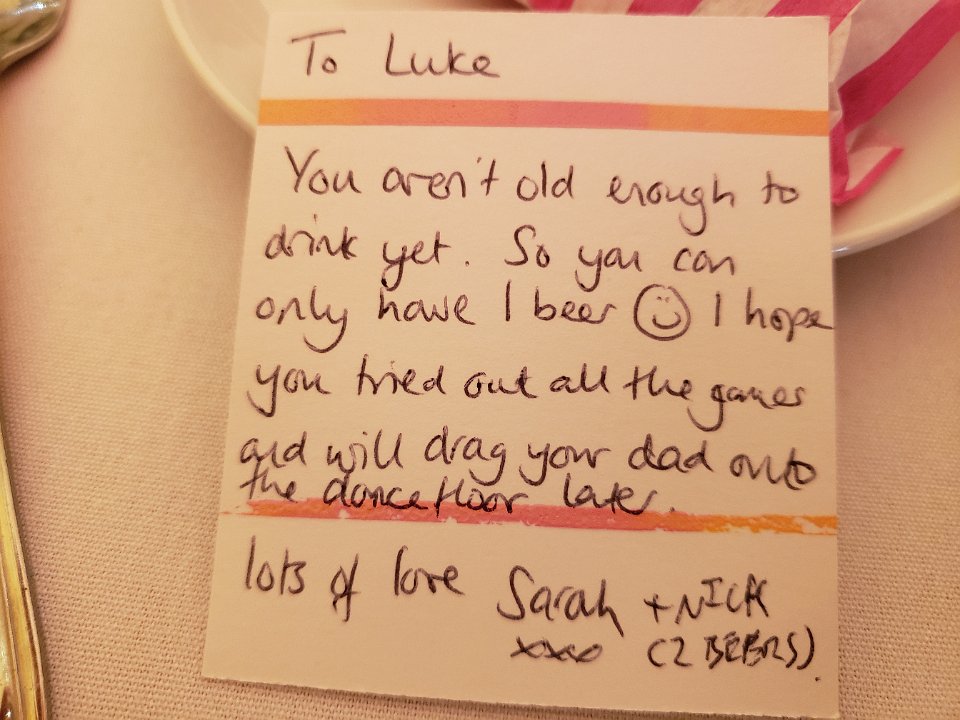 To Luke
You aren't old enough to
drink yet. So you can
only have 1 beer ☺ I hope
you tried out all the games
and will drag your dad onto
the dancefloor later.
lots of love Sarah + NICK
xxxo (2 BEERS).